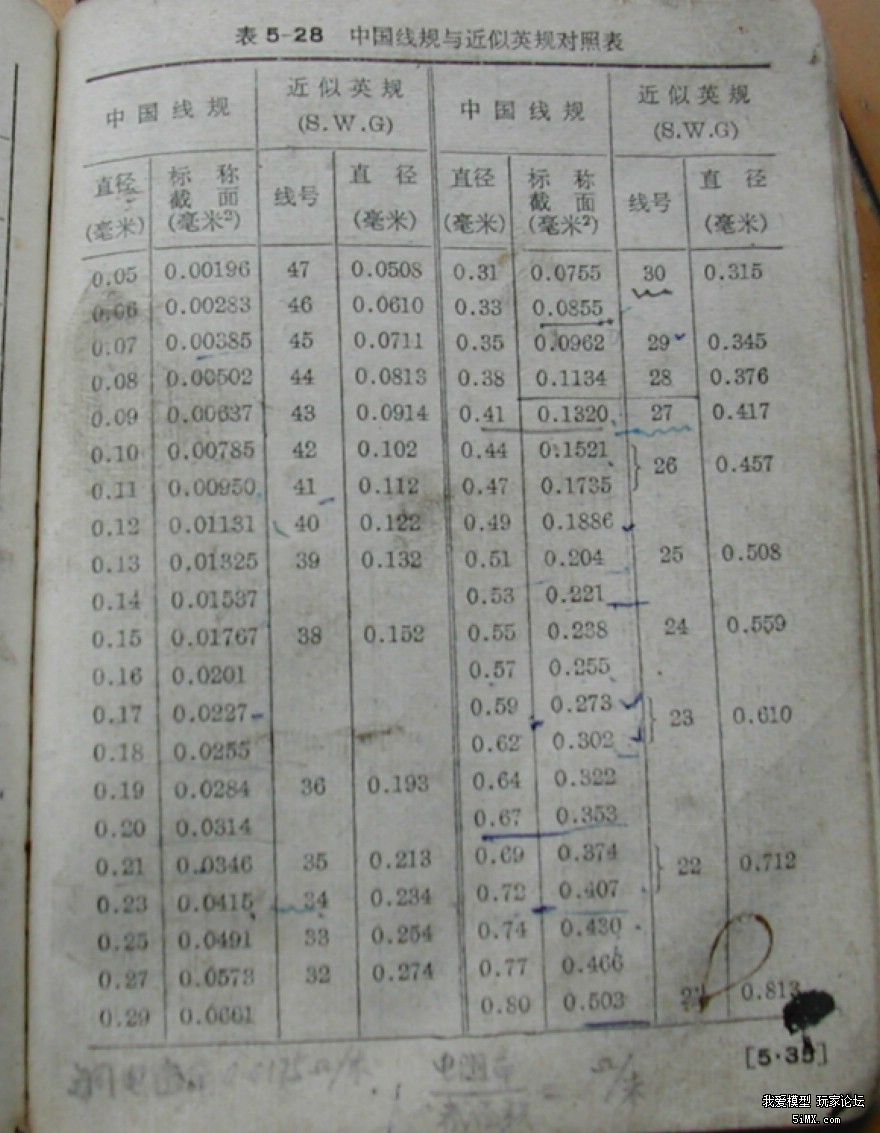 表 5-28 中国线规与近似英规对照表
中国线规 近似英规 (S.W.G) 中国线规 近似英规 (S.W.G)
直径 (毫米) 标称截面 (毫米²) 线号 直径 (毫米) 直径 (毫米) 标称截面 (毫米²) 线号 直径 (毫米)
0.05 0.00196 47 0.0508 0.31 0.0755 30 0.315
0.06 0.00283 46 0.0610 0.33 0.0855
0.07 0.00385 45 0.0711 0.35 0.0962 29 0.345
0.08 0.00502 44 0.0813 0.38 0.1134 28 0.376
0.09 0.00637 43 0.0914 0.41 0.1320 27 0.417
0.10 0.00785 42 0.102 0.44 0.1521
26 0.457
0.11 0.00950 41 0.112 0.47 0.1735
0.12 0.01131 40 0.122 0.49 0.1886
0.13 0.01325 39 0.132 0.51 0.204 25 0.508
0.14 0.01537 0.53 0.221
0.15 0.01767 38 0.152 0.55 0.238 24 0.559
0.16 0.0201 0.57 0.255
0.17 0.0227 0.59 0.273
23 0.610
0.18 0.0255 0.62 0.302
0.19 0.0284 36 0.193 0.64 0.322
0.20 0.0314 0.67 0.353
0.21 0.0346 35 0.213 0.69 0.374
22 0.712
0.23 0.0415 34 0.234 0.72 0.407
0.25 0.0491 33 0.254 0.74 0.430
0.27 0.0573 32 0.274 0.77 0.466
0.29 0.0661 0.80 0.503 0.813
[5·35]
我爱模型 玩家论坛
5iMX.com